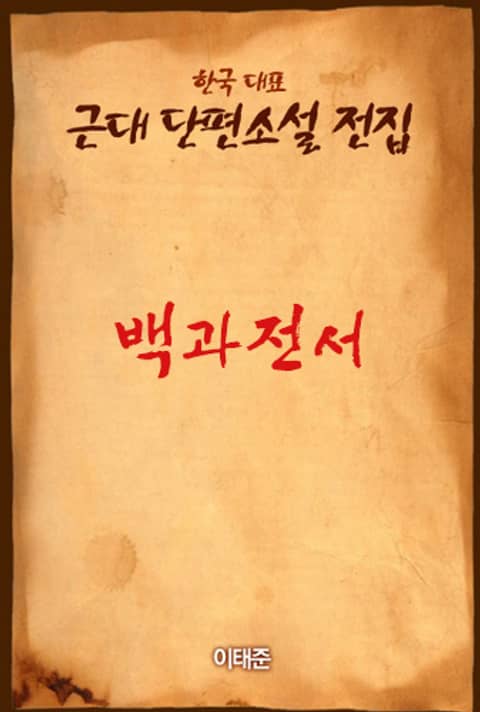 한국 대표
근대 단편소설 전집
백과전서
이태준